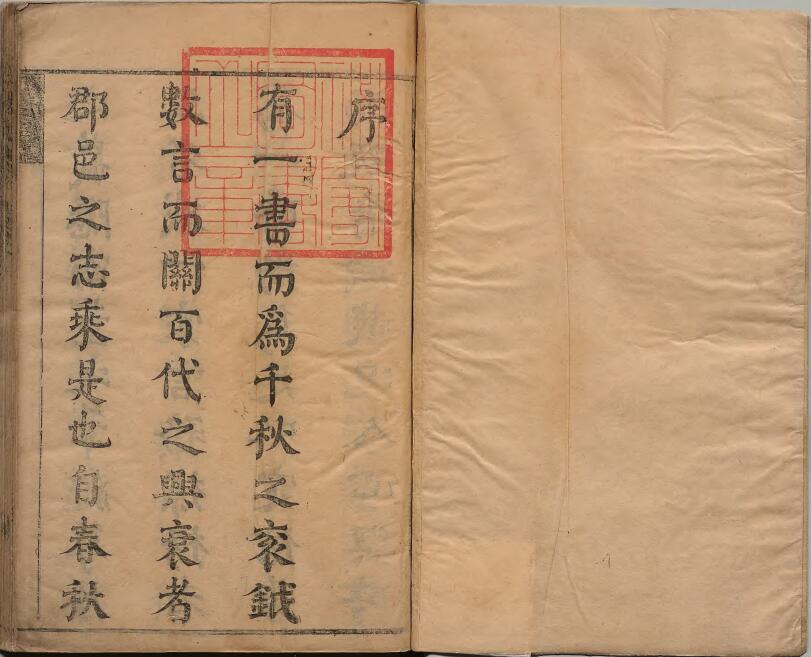 序
有一書而爲千秋之衮鉞
數言而關百代之興衰者
郡邑之志乘是也自春秋